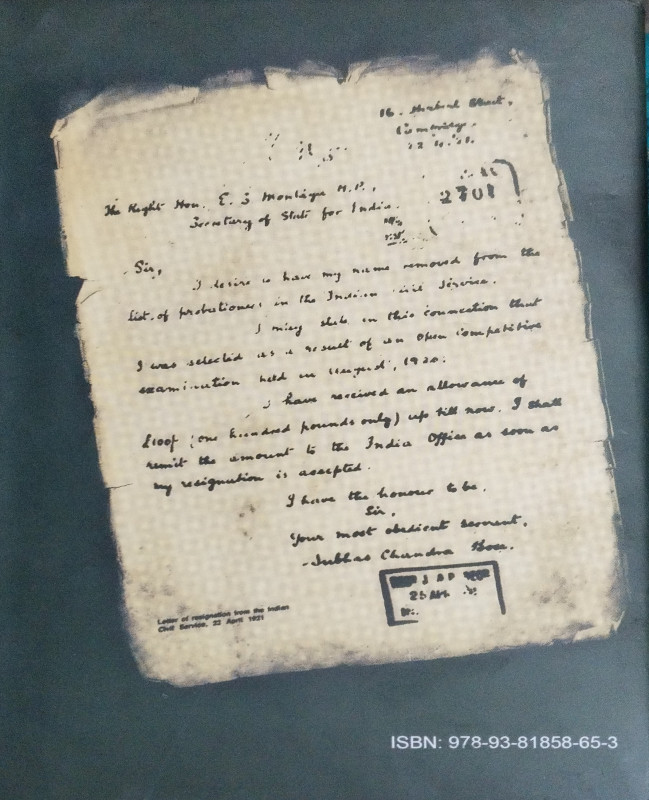 16, Herbert Street,
Cambridge.
22.4.21.
The Right Hon. E. S Montague M.P.,
Secretary of State for India.
2701
Sir,
I desire to have my name removed from the
list of probationers in the Indian Civil Service.
I may state in this connection that
I was selected as a result of an open competitive
examination held in August, 1920.
I have received an allowance of
£100/- (one hundred pounds only) up till now. I shall
remit the amount to the India Office as soon as
my resignation is accepted.
I have the honour to be,
Sir,
Your most obedient servant,
Subhas Chandra Bose.
J & P
Letter of resignation from the Indian
Civil Service, 22 April 1921
ISBN: 978-93-81858-65-3